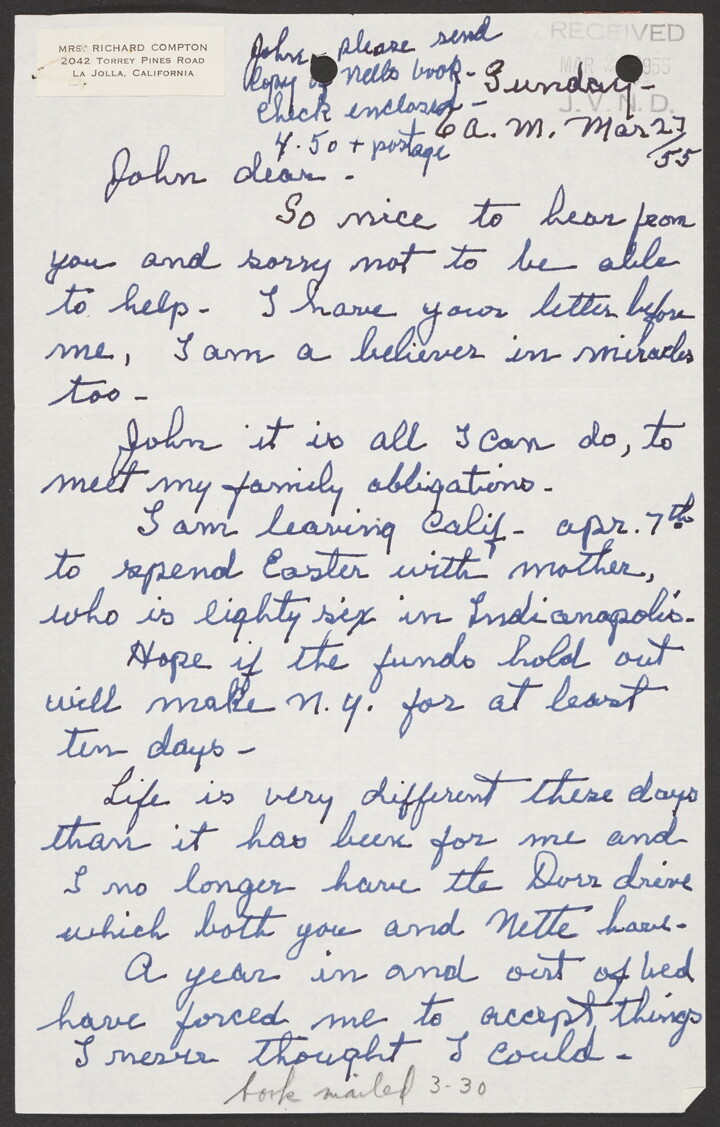 MRS. RICHARD COMPTON
2042 TORREY PINES ROAD
LA JOLLA, CALIFORNIA
RECEIVED
MAR 1955
J. V. N. D.
John, please send
Copy of Nells book-
Check enclosed-
4.50 + postage
Sunday-
6 A. M. Mar 27/55
John dear-
So nice to hear from
you and sorry not to be able
to help- I have your letter before
me, I am a believer in miracles
too-
John it is all I can do, to
meet my family obligations-
I am leaving Calif- apr. 7th
to spend Easter with mother,
who is eighty six in Indianapolis-
Hope if the funds hold out
will make N.Y. for at least
ten days-
Life is very different these days
than it has been for me and
I no longer have the Dorr drive
which both you and Nette have-
A year in and out of bed
have forced me to accept things
I never thought I could-
book mailed 3-30